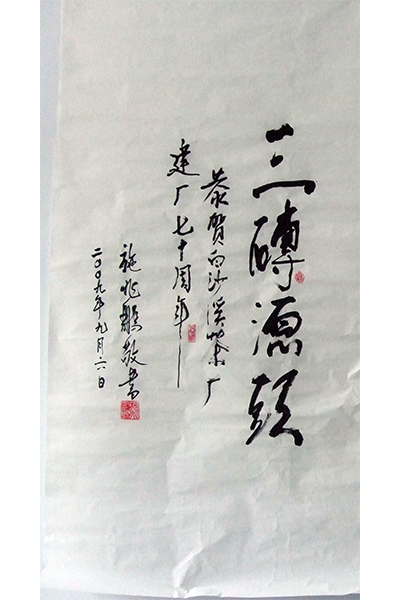 三砖源头
恭贺白沙溪茶厂
建厂七十周年
施兆鹏敬书
二〇〇九年九月六日